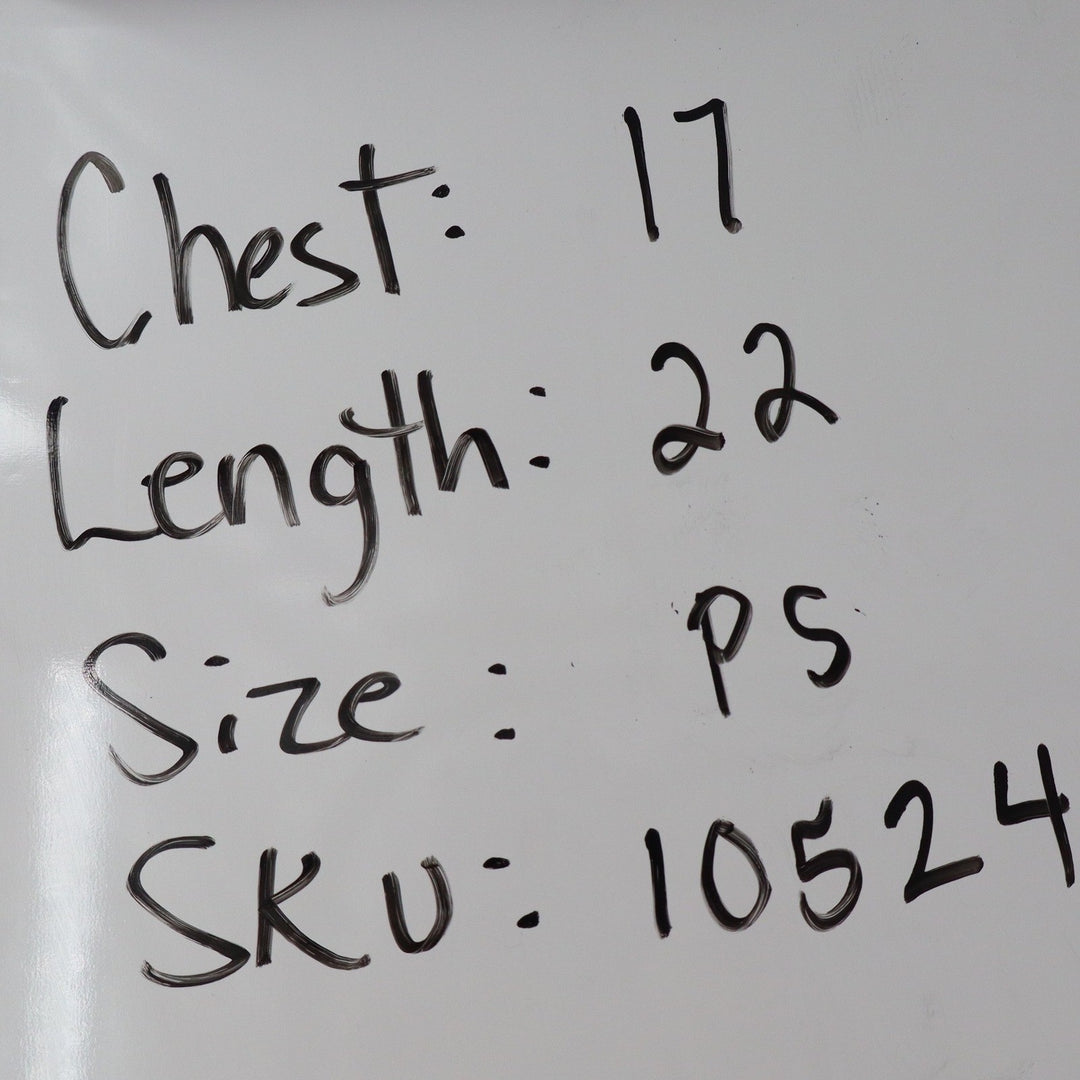 Chest: 17
Length: 22
Size: PS
SKU: 10524